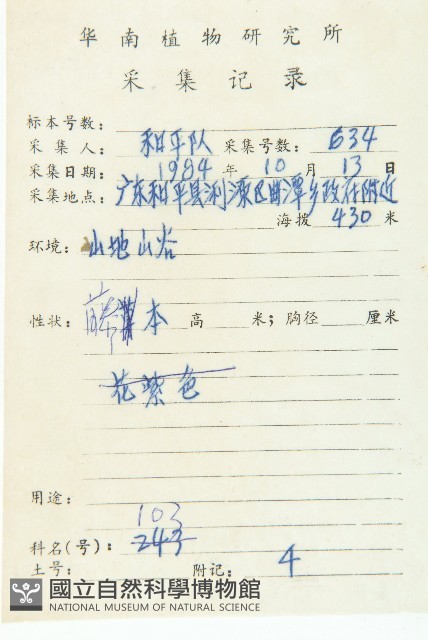 华南植物研究所
采集记录
标本号数:
采集人: 和平队 采集号数: 634
采集日期: 1984 年 10 月 13 日
采集地点: 广东和平县浰源区曲潭乡政府附近
海拨 430 米
环境: 山地山谷
性状: 藤本 高 米; 胸径 厘米
花紫色
用途:
103
科名(号): 243
土号: 附记: 4
國立自然科學博物館
NATIONAL MUSEUM OF NATURAL SCIENCE